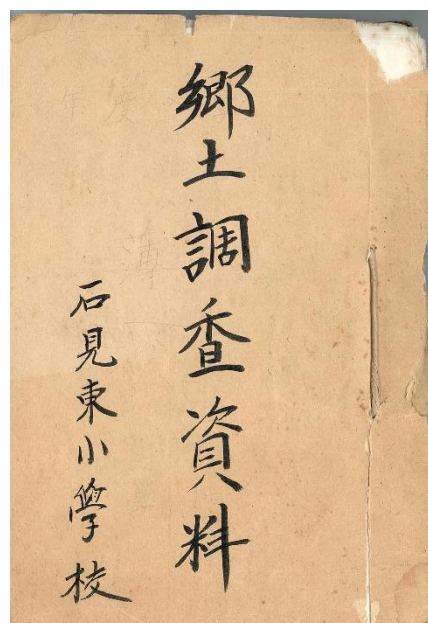 郷土調査資料
石見東小學校